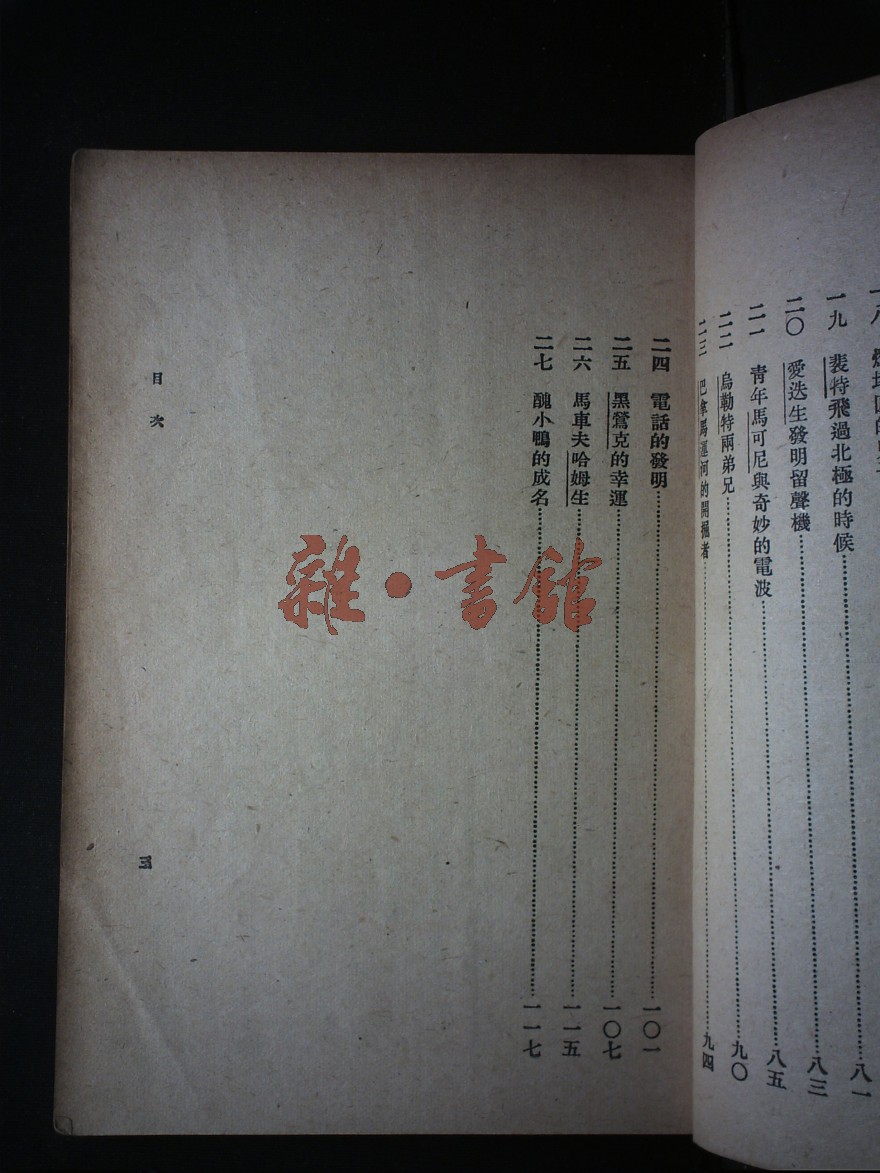 一九 裴特飛過北極的時候……八一
二〇 愛迭生發明留聲機……八三
二一 青年馬可尼與奇妙的電波……八五
二二 烏勒特兩弟兄……九〇
二三 巴拿馬運河的開掘者……九四
二四 電話的發明……一〇一
二五 黑鶯克的幸運……一〇七
二六 馬車夫哈姆生……一一五
二七 醜小鴨的成名……一一七
目次
三
雜·書館